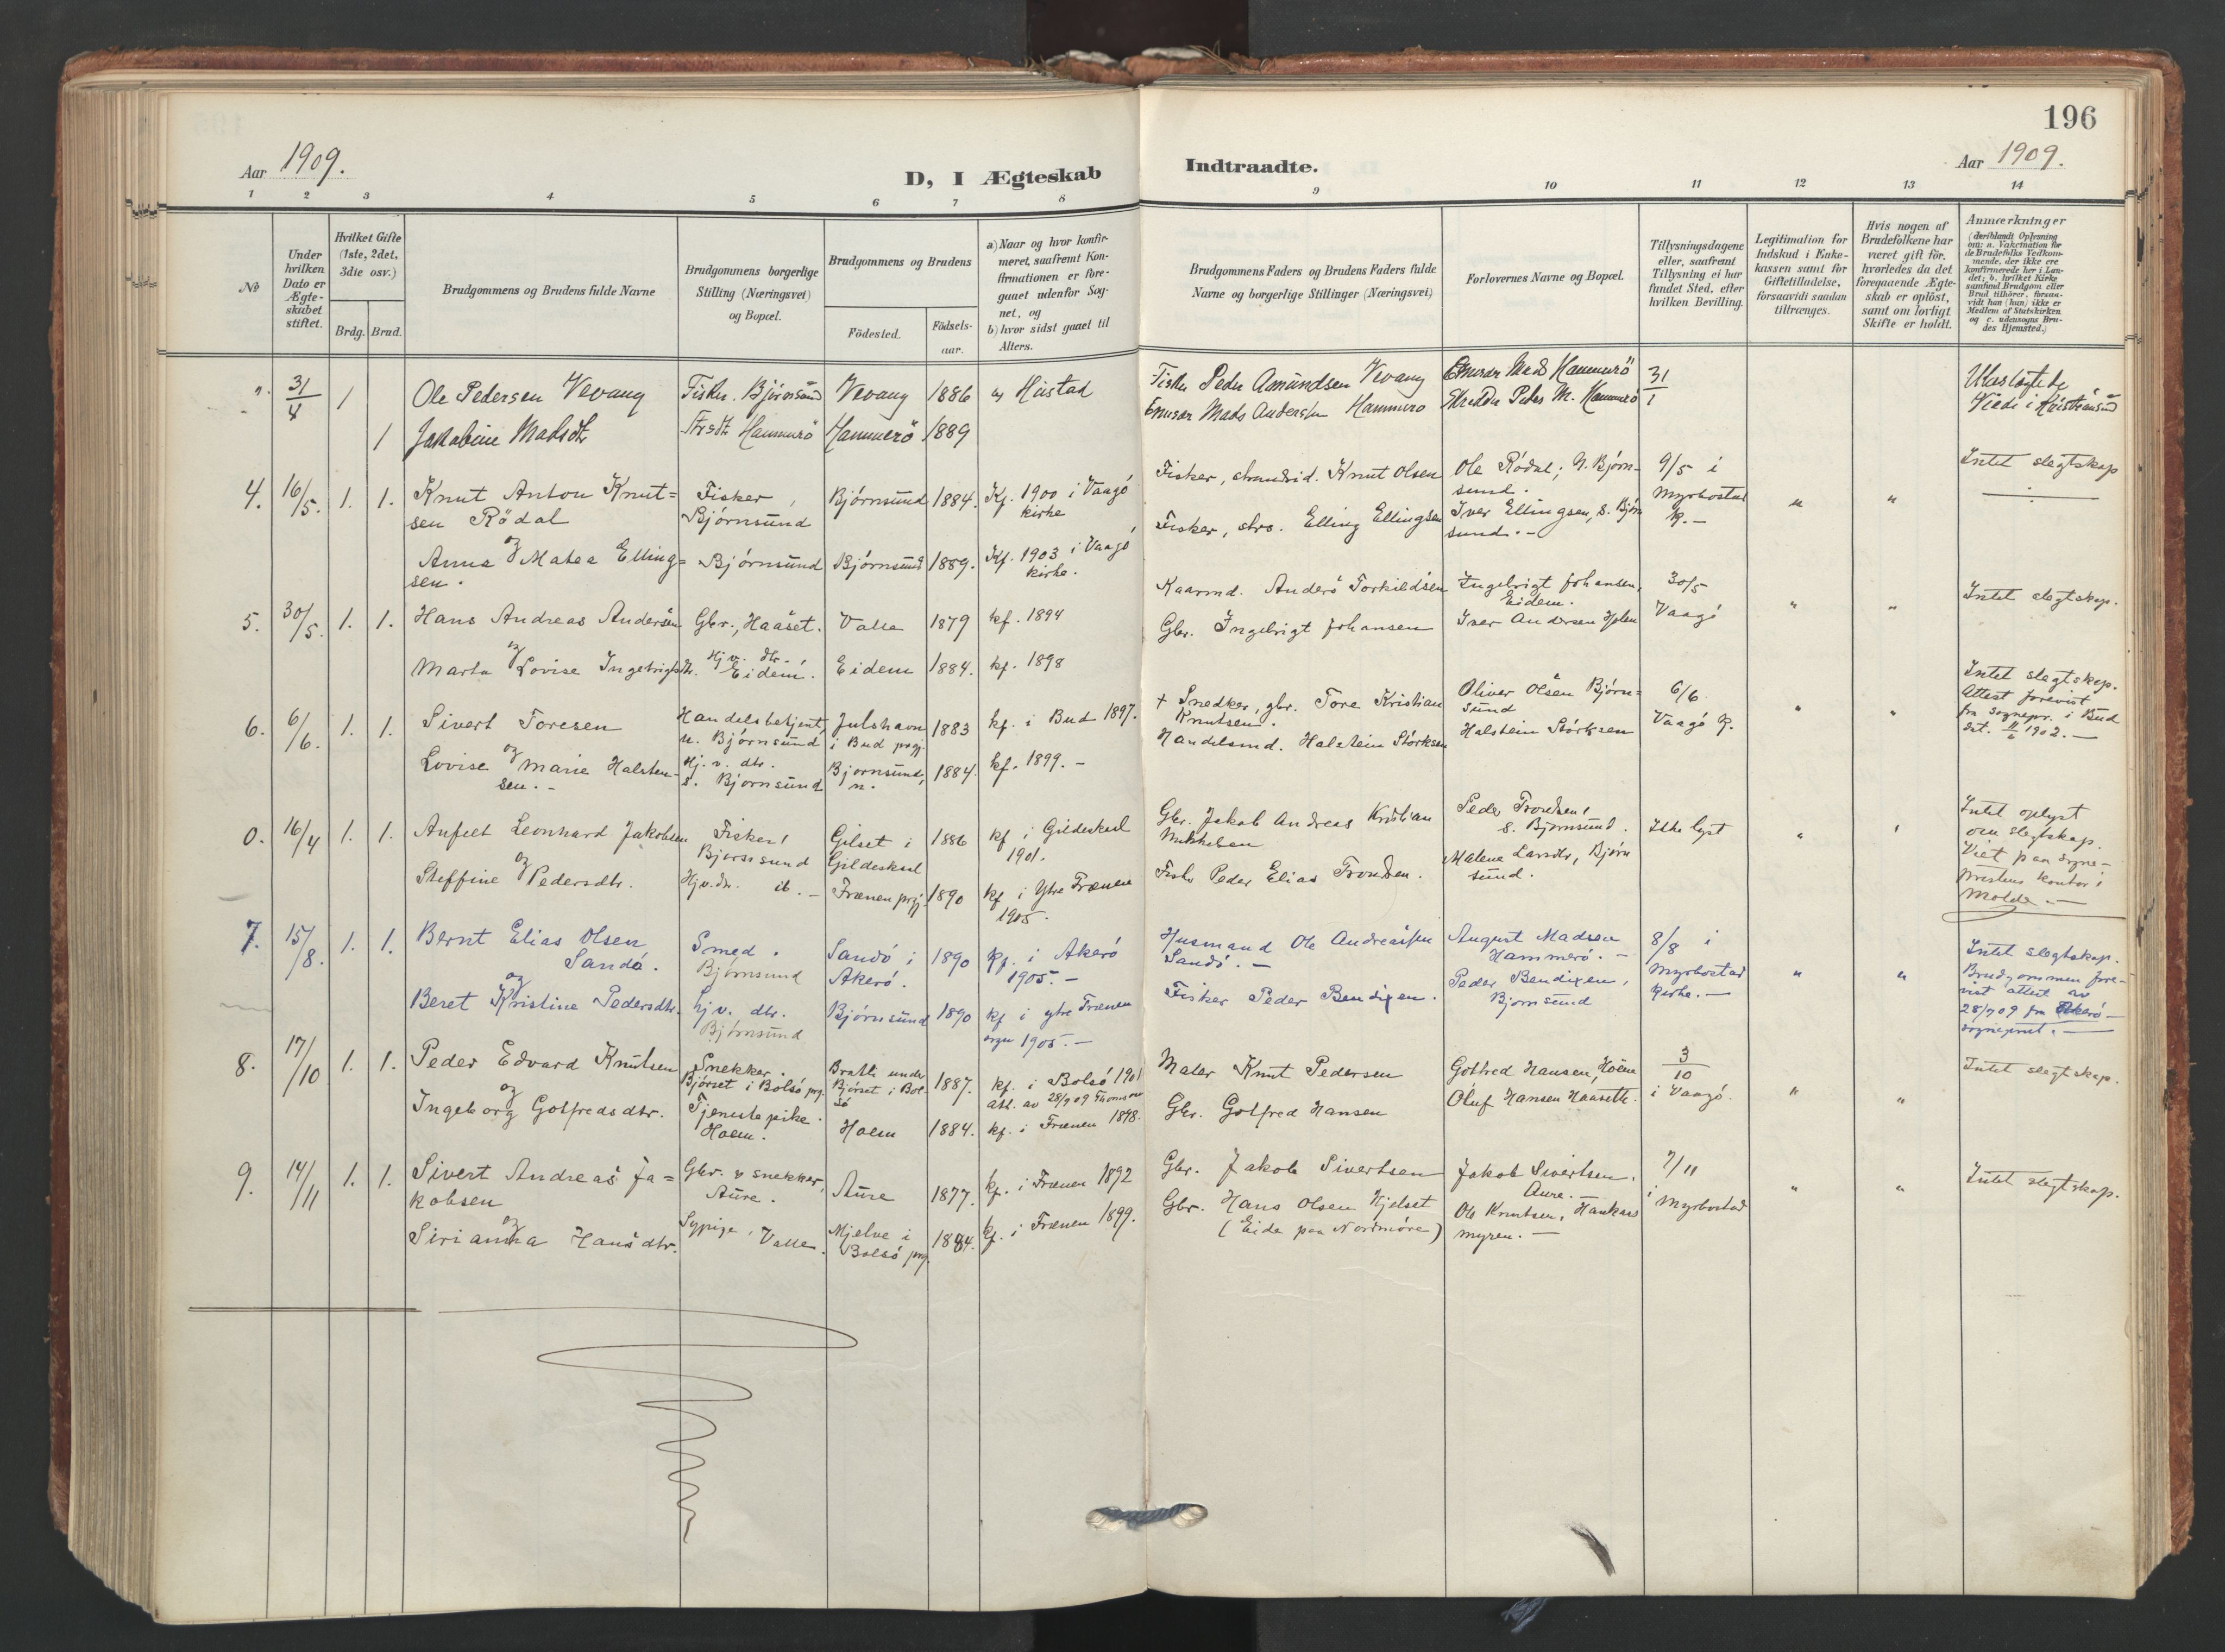 196
Aar 1909.
D, I Ægteskab Indtraadte.
Aar 1909.
1 2 3 4 5 6 7 8 9 10 11 12 13 14
No
Under hvilken Dato er Ægteskabet stiftet.
Hvilket Gifte (1ste, 2det, 3die osv.)
Brdg. Brud.
Brudgommens og Brudens fulde Navne
Brudgommens borgerlige Stilling (Næringsvei) og Bopæl.
Brudgommens og Brudens
Födested.
Födselsaar.
a) Naar og hvor konfirmeret, saafremt Konfirmationen er foregaaet udenfor Sognet, og
b) hvor sidst gaaet til Alters.
Brudgommens Faders og Brudens Faders fulde Navne og borgerlige Stillinger (Næringsvei)
Forlovernes Navne og Bopæl.
Tillysningsdagene eller, saafremt Tillysning ei har fundet Sted, efter hvilken Bevilling.
Legitimation for Indskud i Enkekassen samt for Giftetilladelse, forsaavidt saadan tiltrænges.
Hvis nogen af Brudefolkene har været gift för, hvorledes da det foregaaende Ægteskab er oplöst, samt om lovligt Skifte er holdt.
Anmærkninger (deriblandt Oplysning om: a. Vakcination for de Brudefolks Vedkommende, der ikke ere konfirmerede her i Landet; b. hvilket Kirkesamfund Brudgom eller Brud tilhörer, forsaavidt han (hun) ikke er Medlem af Statskirken og c. udensogns Brudes Hjemsted.)
". 31/4 1 Ole Pedersen Vevang Fisker. Björnsund Vevang 1886 a) Hustad Fisker Peder Amundsen Vevang Mads Hammerö 31/1
1 Jakobine Madsdtr Hammerö Hammerö 1889 Mads Andersen Hammerö Peder M. Hammerö Viede i Kristiansund
4. 16/5. 1. 1. Knut Anton Knutsen Rödal Fisker, Björnsund Björnsund 1884. Kf. 1900 i Vaagö kirke Fisker, strandsid. Knut Olsen Ole Rödal, N. Björnsund. 9/5 i Myrbostad K.- " " Intet slegtskap
og Anna Matea Ellingsen. Björnsund Björnsund 1889. Kf. 1903 i Vaagö kirke. Fisker, strs. Elling Ellingsen Iver Ellingsen, S. Björnsund.-
5. 30/5. 1. 1. Hans Andreas Andersen Gbr., Haaset. Valle 1879 kf. 1894 Kaarmd. Anders Torkildsen Ingebrigt Johansen, Eidem. 30/5 Vaagö " " Intet slegtskap.
og Marta Lovise Ingebrigtsdtr. Hj. v. dtr., Eidem. Eidem 1884. kf. 1898 Gbr. Ingebrigt Johansen Iver Andersen Hjelen
6. 6/6. 1. 1. Sivert Toresen Handelsbetjent, n. Björnsund Julshavn i Bud prgj. 1883 kf. i Bud 1897. + Snedker, gbr. Tore Kristian Knutsen. Oliver Olsen Björnsund 6/6 Vaagö K. " " Intet slegtskap. Attest forevist fra sognepr. i Bud dat. 11/6 1902.-
og Lovise Marie Halstensen.- Hj. v. dtr. s. Björnsund Bjornsund, n. 1884. kf. 1899.- Handelsmd. Halstein Störksen Halstein Störksen
0. 16/4 1. 1. Anfelt Leonhard Jakobsen Fisker, Bjørnsund Gilset i Gildeskaal 1886 kf i Gildeskaal 1901. Gbr. Jakob Andreas Kristian Mikkelsen Peder Trondsen, s. Björnsund. Ikke lyst " ' Intet oplyst om slegtskap. Viet paa sogneprestens kontor i Molde.-
og Steffine Pedersdtr. Hj.v.dtr. ib.- Frænen prgj. 1890 kf i Ytre Frænen 1905. Fisker Peder Elias Trondsen. Malene Larsdtr, Björnsund.
7. 15/8. 1. 1. Bernt Elias Olsen Sandö. Smed. Björnsund Sandö i Akerö. 1890 kf. i Akerö 1905.- Husmand Ole Andreassen Sandö.- August Madsen Hammerö.- 8/8 i Myrbostad kirke.- " " Intet slegtskap. Brudgommen forevist attest av 28/7 09 fra Akerö sogneprest.-
og Beret Kristine Pedersdtr. Hj. v. dtr. Björnsund Björnsund 1890 kf i ytre Frænen sogn 1905.- Fisker Peder Bendixen. Peder Bendixen, Bjornsund
8. 17/10 1. 1. Peder Edvard Knutsen Snekker. Björset i Bolsö prgj. Bratli under Björset i Bolsö 1887. kf. i Bolsö 1901 att. av 28/9 09 Maler Knut Pedersen Gotfred Hansen, Holm 3/10 i Vaagö. " " Intet slegtskap.
og Ingeborg Gotfredsdtr. Tjenestepike. Holm. Holm 1884. kf. i Frænen 1898. Gbr. Gotfred Hansen Oluf Hansen Haaseth.
9. 14/11 1. 1. Sivert Andreas Jakobsen Gbr. & snekker, Aure. Aure 1877. kf. i Frænen 1892 Gbr. Jakob Sivertsen Jakob Sivertsen, Aure. 7/11 i Myrbostad " " Intet slegtskap.
og Sirianna Hansdtr. Sypige, Valle. Mjelve i Bolsö prgj. 1884. kf. i Frænen 1899. Gbr. Hans Olsen Kjelset (Eide paa Nordmöre) Ole Knutsen, Haukaasmyren.-